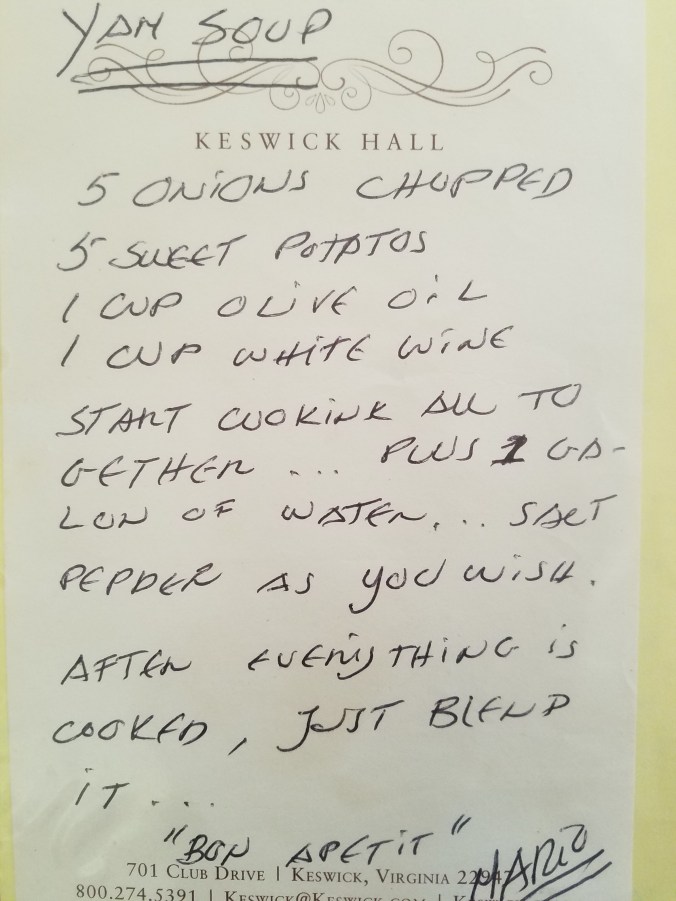 YAM SOUP
KESWICK HALL
5 ONIONS CHOPPED
5 SWEET POTATOS
1 CUP OLIVE OIL
1 CUP WHITE WINE
START COOKING ALL TO
GETHER ... PLUS 1 GA-
LON OF WATER... SALT
PEPPER AS YOU WISH.
AFTER EVERYTHING IS
COOKED, JUST BLEND
IT...
"BON APETIT"
MARIO
701 CLUB DRIVE | KESWICK, VIRGINIA
800.274.5391 | KESWICK@KESWICK.COM |